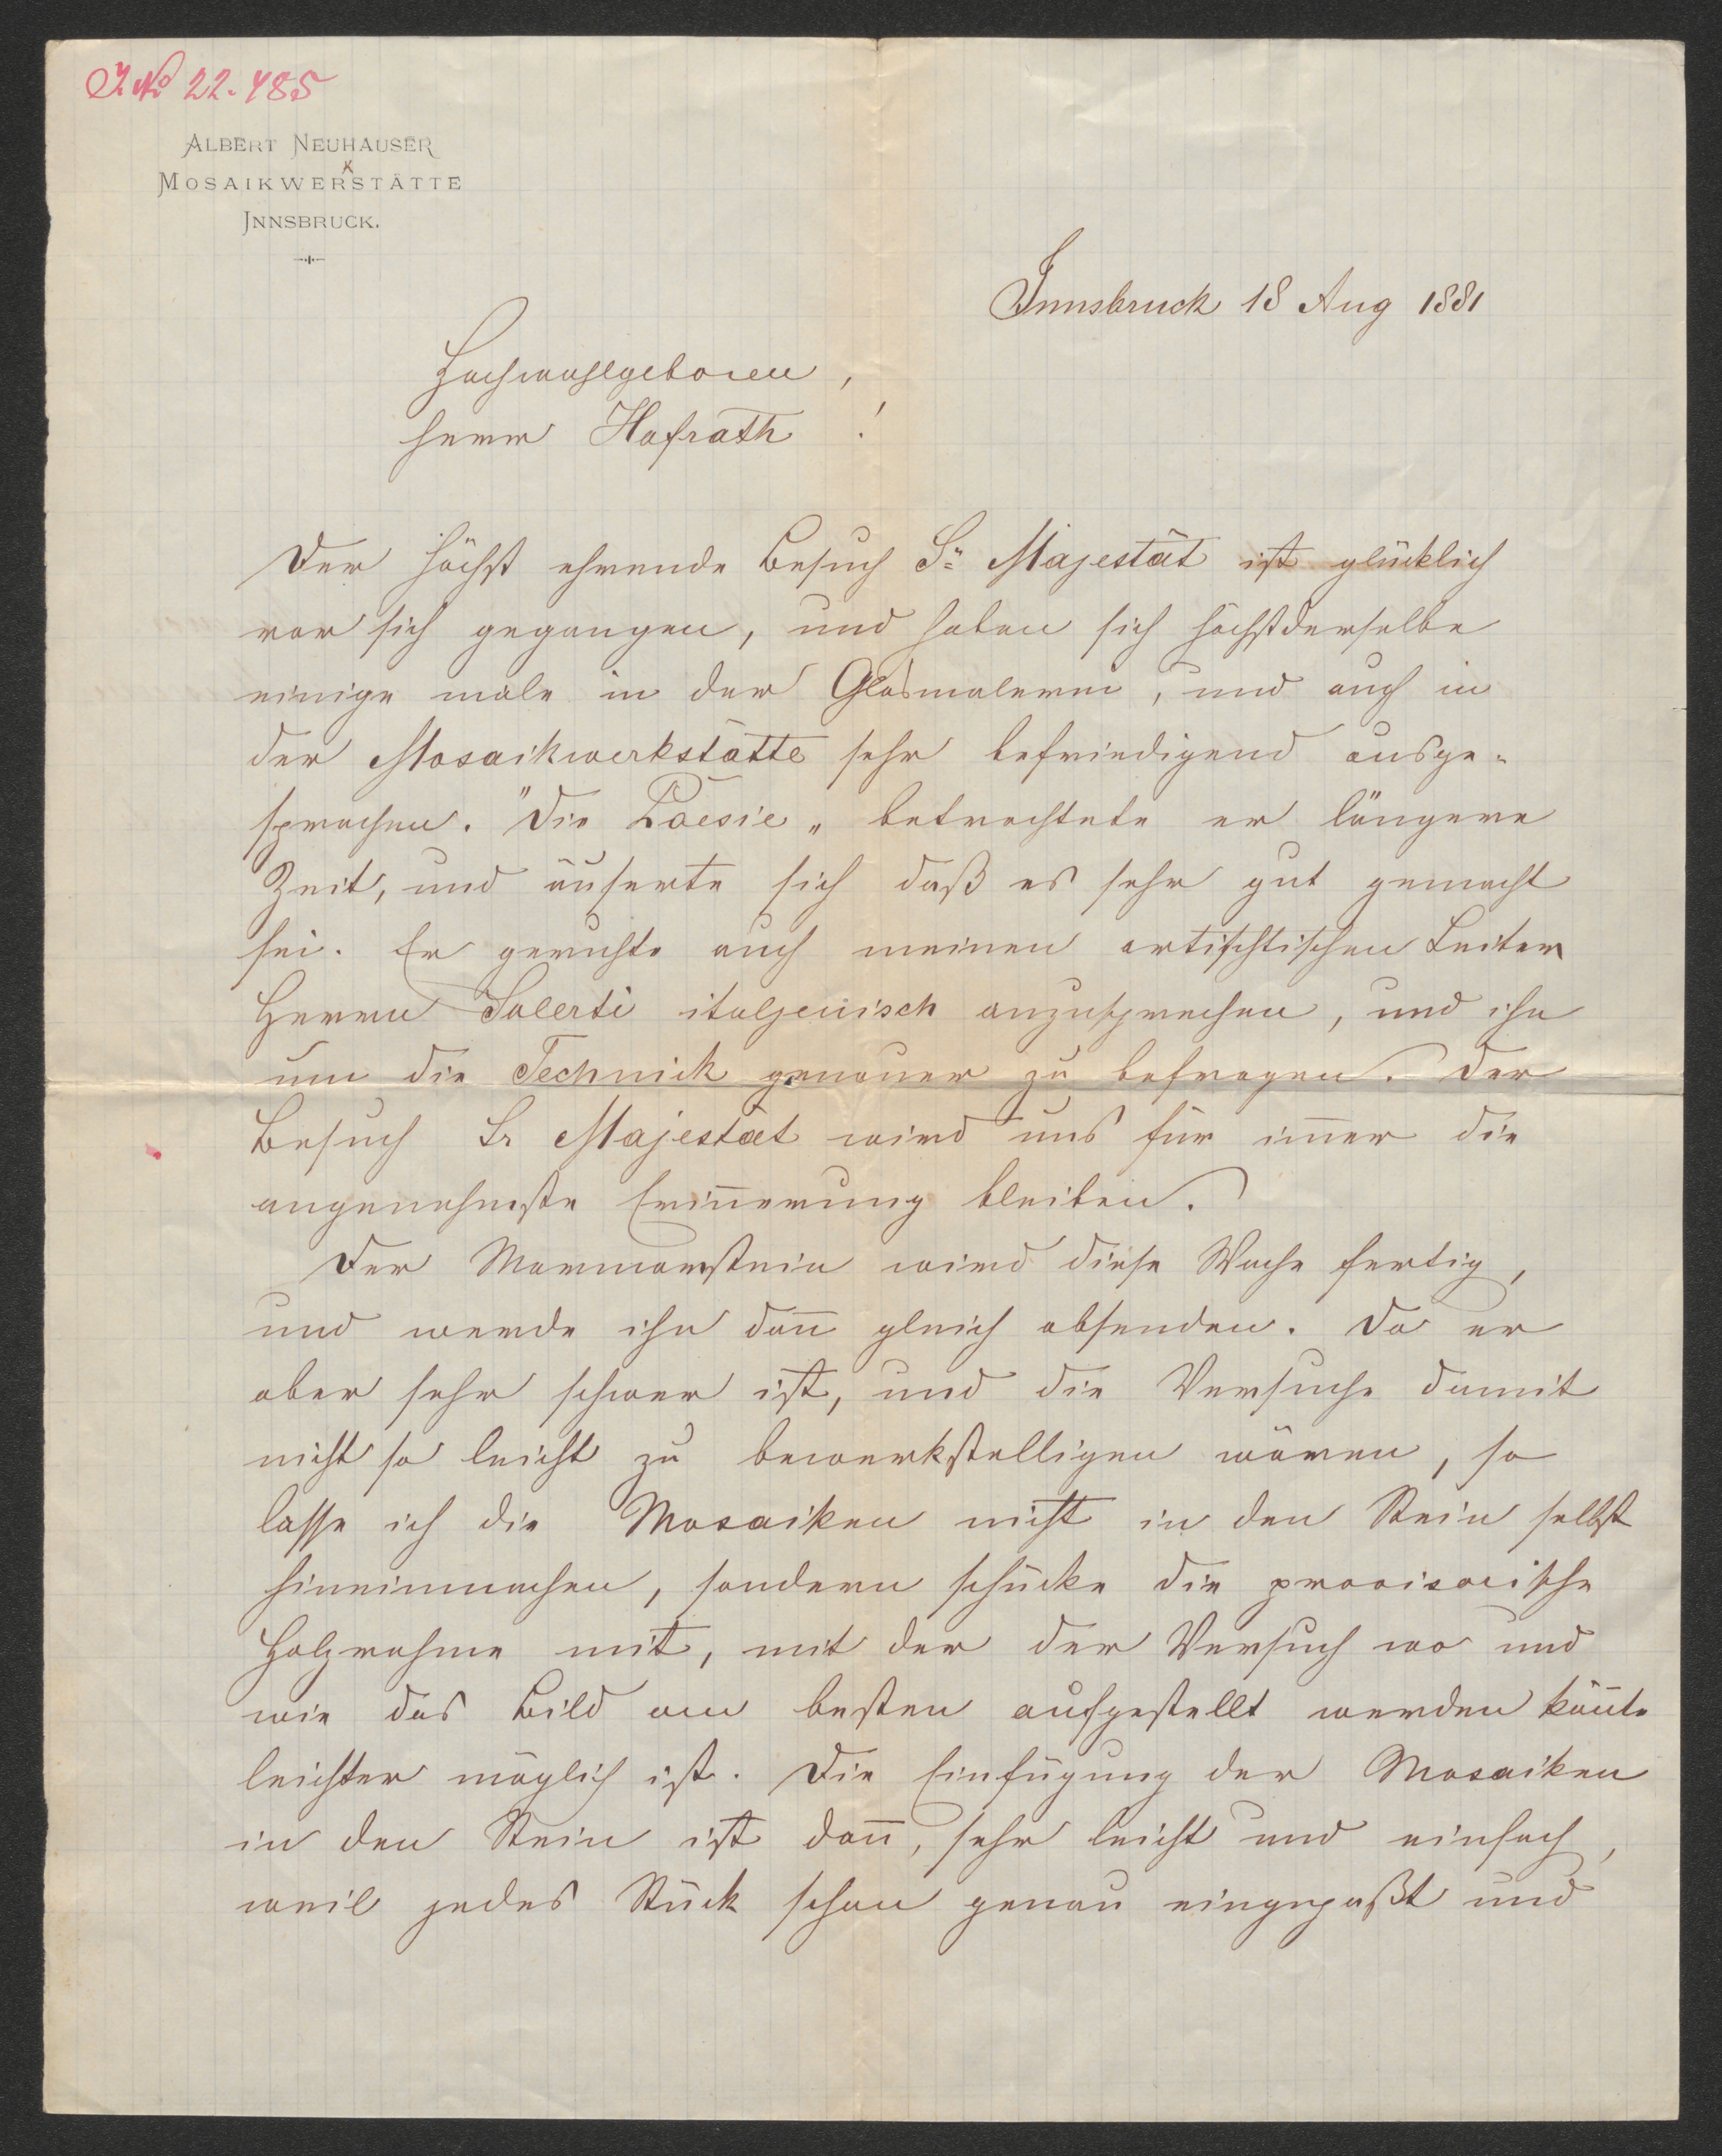 J. No 22.485
ALBERT NEUHAUSER
MOSAIKWERKSTÄTTE
INNSBRUCK.
Innsbruck 18 Aug 1881
Hochwohlgeboren,
Herr Hofrath !
Der höchst ehrende Besuch Sr Majestät ist glücklich
vor sich gegangen, und haben sich höchstderselbe
einige male in der Glasmalerei, und auch in
der Mosaikwerkstätte sehr befriedigend ausge-
sprochen. "Die Poesie" betrachtete er längere
Zeit, und äuserte sich daß es sehr gut gemacht
sei. Er geruhte auch meinen artischtischen Leiter
Herrn Solerti italjenisch anzusprechen, und ihn
um die Technick genauer zu befragen. Der
Besuch Sr Majestät wird uns für im̅er die
angenehmste Erin̅erung bleiben.
Der Marmorstein wird diese Woche fertig,
und werde ihn dan̅ gleich absenden. Da er
aber sehr schwer ist, und die Versuche damit
nicht so leicht zu bewerkstelligen wären, so
lasse ich die Mosaiken nicht in den Stein selbst
hineinmachen, sondern schücke die provisorische
Holzrahme mit, mit der der Versuch wo und
wie das Bild am besten aufgestellt werden kön̅te
leichter möglich ist. Die Einfügung der Mosaiken
in den Stein ist dan̅, sehr leicht und einfach,
weil jedes Stück schon genau eingepaßt und